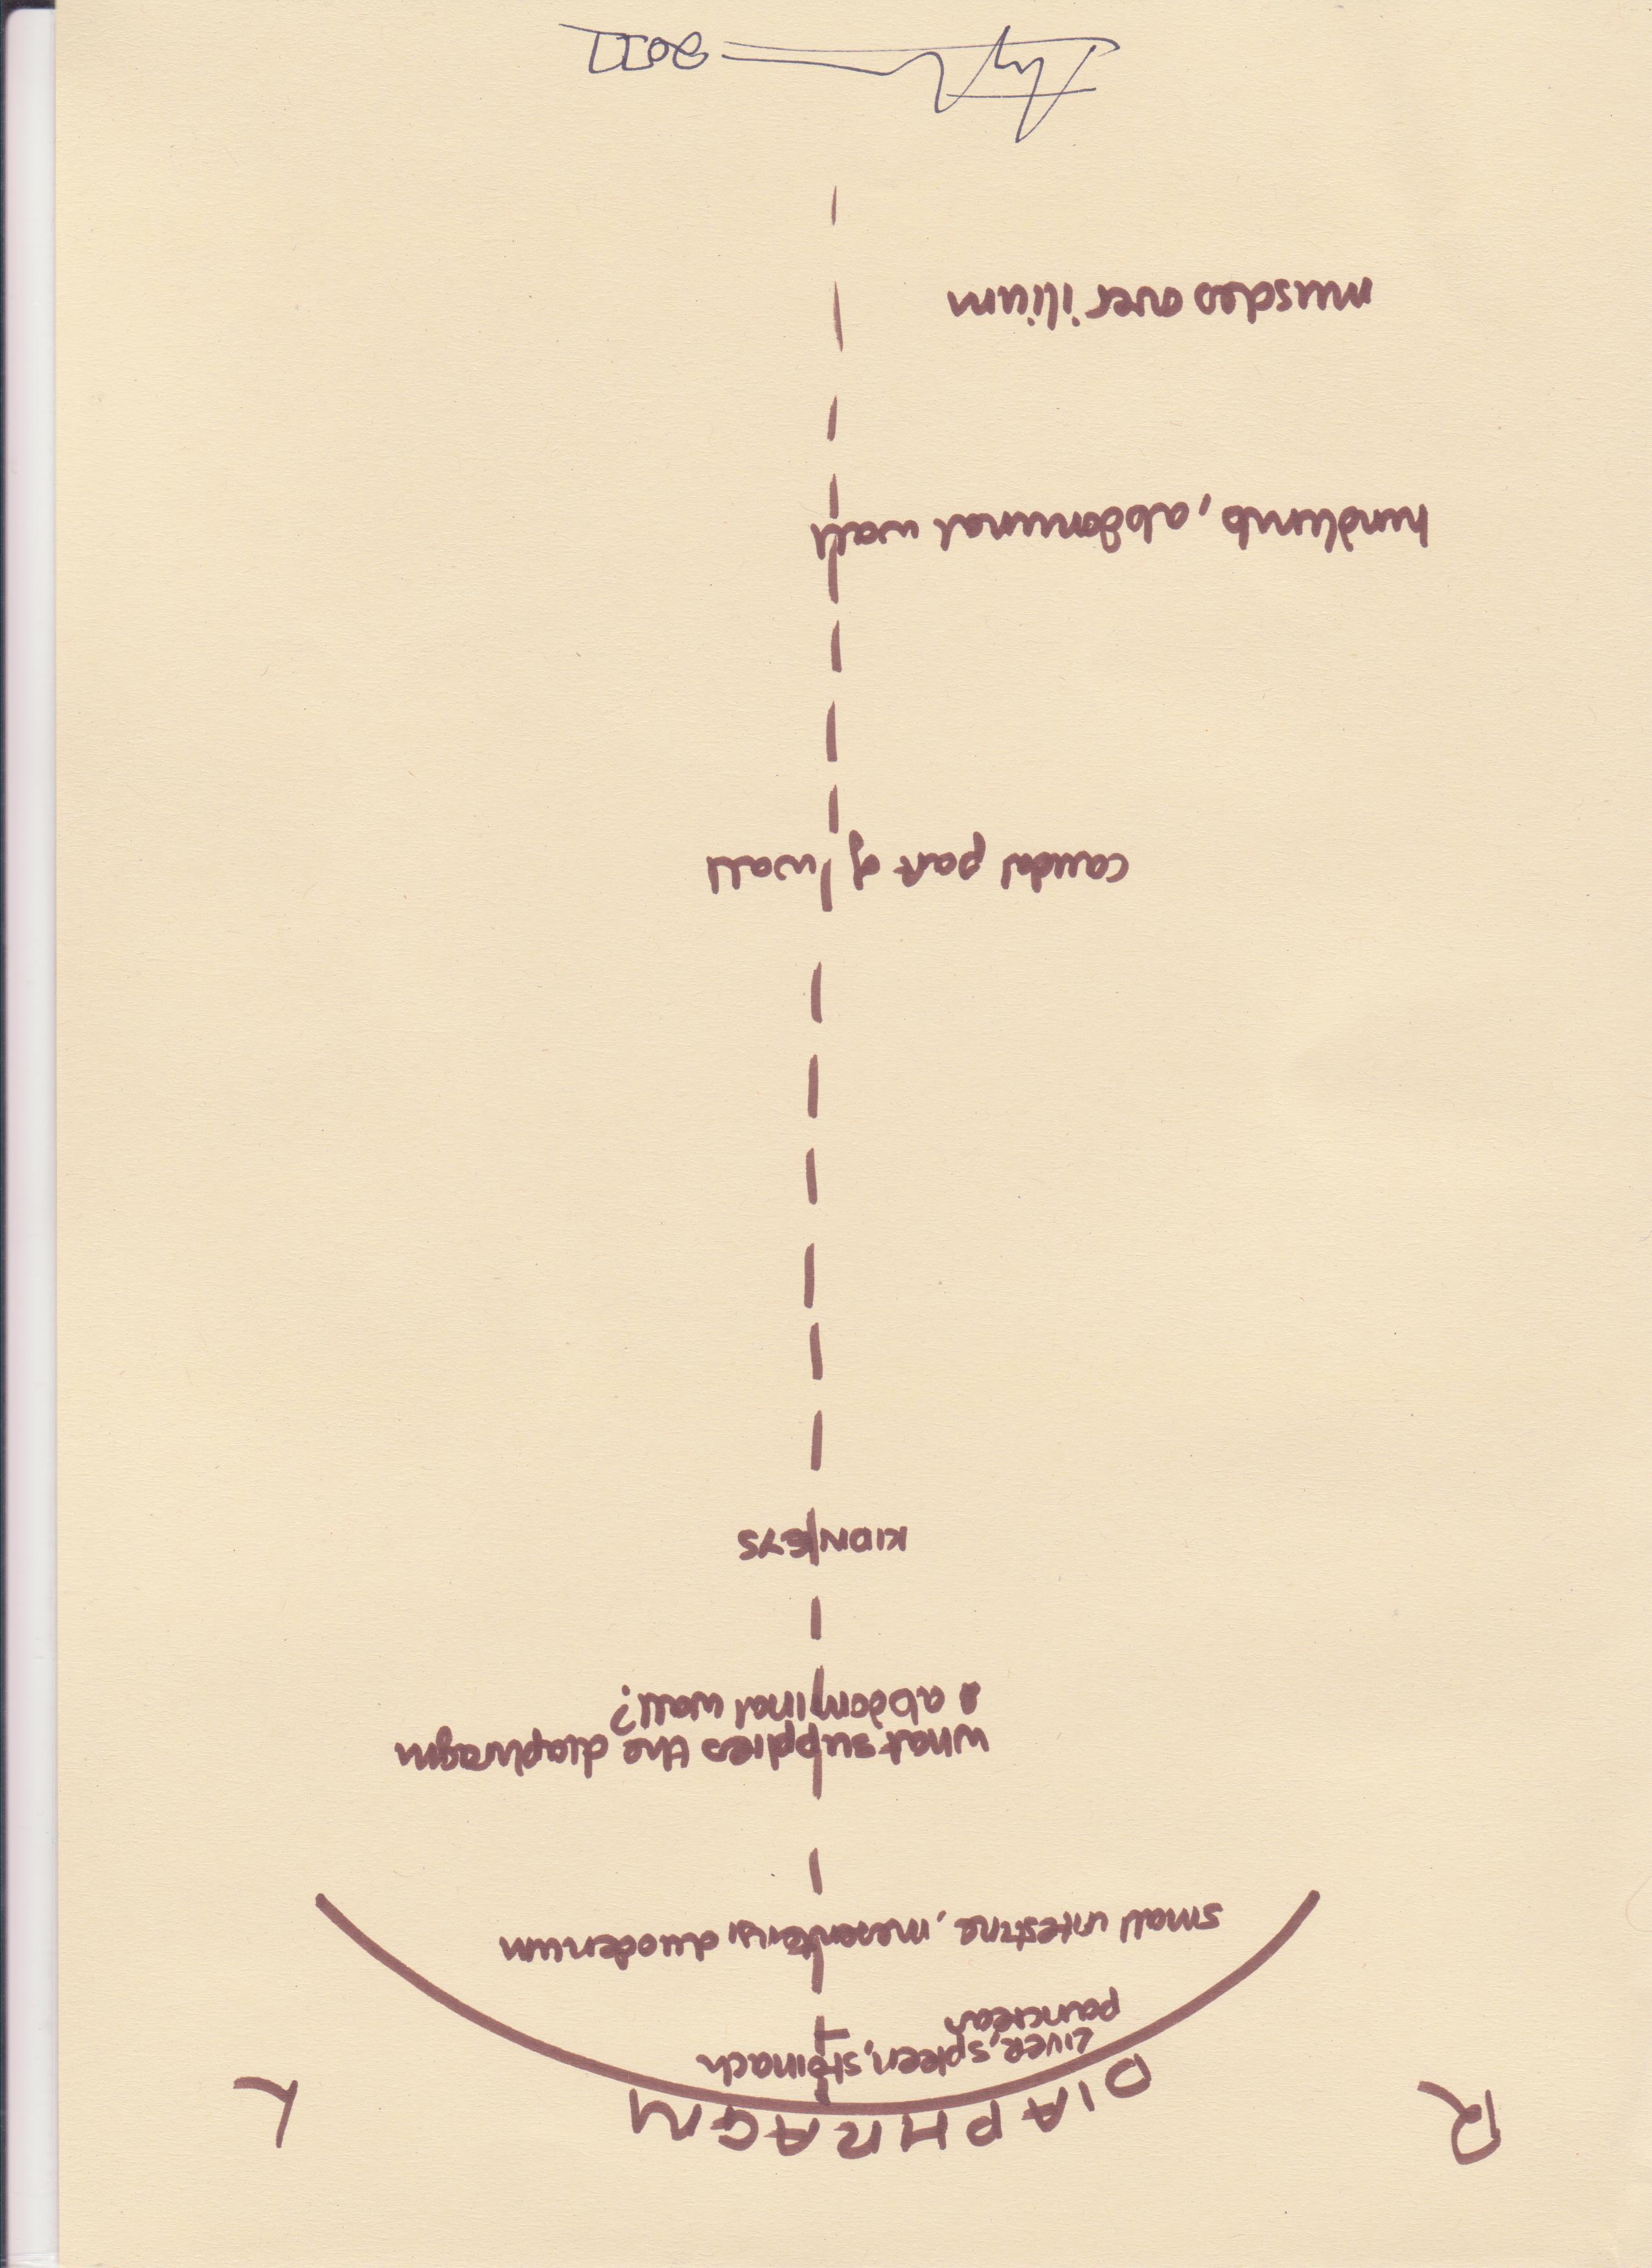 R
L
DIAPHRAGM
Liver, spleen, stomach
pancreas
small intestine, mesentery, duodenum
what supplies the diaphragm
& abdominal wall?
KIDNEYS
caudal part of wall
hindlimb, abdominal wall
muscles over ilium
2011